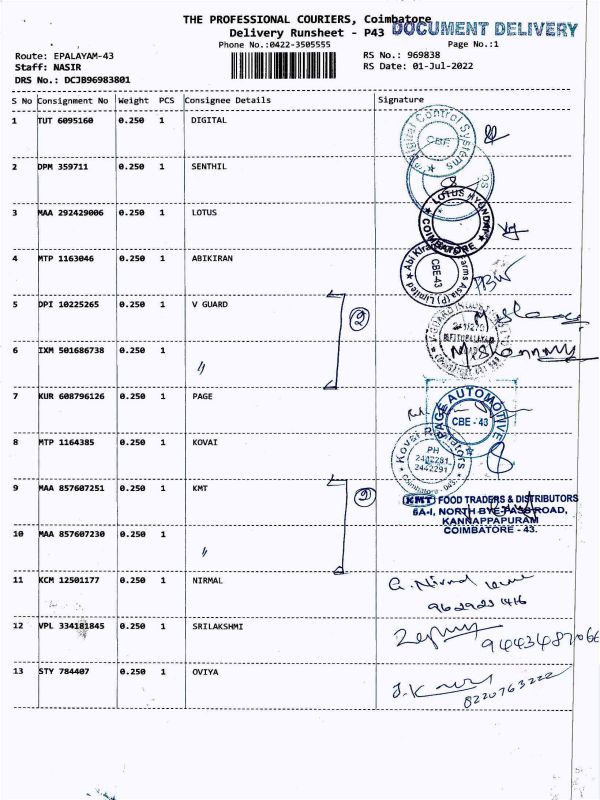 THE PROFESSIONAL COURIERS, Coimbatore
DOCUMENT DELIVERY
Delivery Runsheet - P43
Phone No.:0422-3505555
Page No.:1
Route: EPALAYAM-43
RS No.: 969838
Staff: NASIR
RS Date: 01-Jul-2022
DRS No.: DCJB96983801
S No Consignment No Weight PCS Consignee Details Signature
1 TUT 6095160 0.250 1 DIGITAL
Digital Control Systems
CBE
2 DPM 359711 0.250 1 SENTHIL
3 MAA 292429006 0.250 1 LOTUS
LOTUS HYUNDAI
COIMBATORE
4 MTP 1163046 0.250 1 ABIKIRAN
CBE-43
5 DPI 10225265 0.250 1 V GUARD
6 IXM 501686738 0.250 1 "
7 KUR 608796126 0.250 1 PAGE
PAGE AUTOMOTIVE
CBE - 43
8 MTP 1164385 0.250 1 KOVAI
PH
2442281
2442291
Coimbatore - 043.
9 MAA 857607251 0.250 1 KMT
KMT FOOD TRADERS & DISTRIBUTORS
6A-I, NORTH BYE-PASS ROAD,
KANNAPPAPURAM
COIMBATORE - 43.
10 MAA 857607230 0.250 1 "
11 KCM 12501177 0.250 1 NIRMAL
G. Nirmal
12 VPL 334181845 0.250 1 SRILAKSHMI
13 STY 784407 0.250 1 OVIYA
8220763222